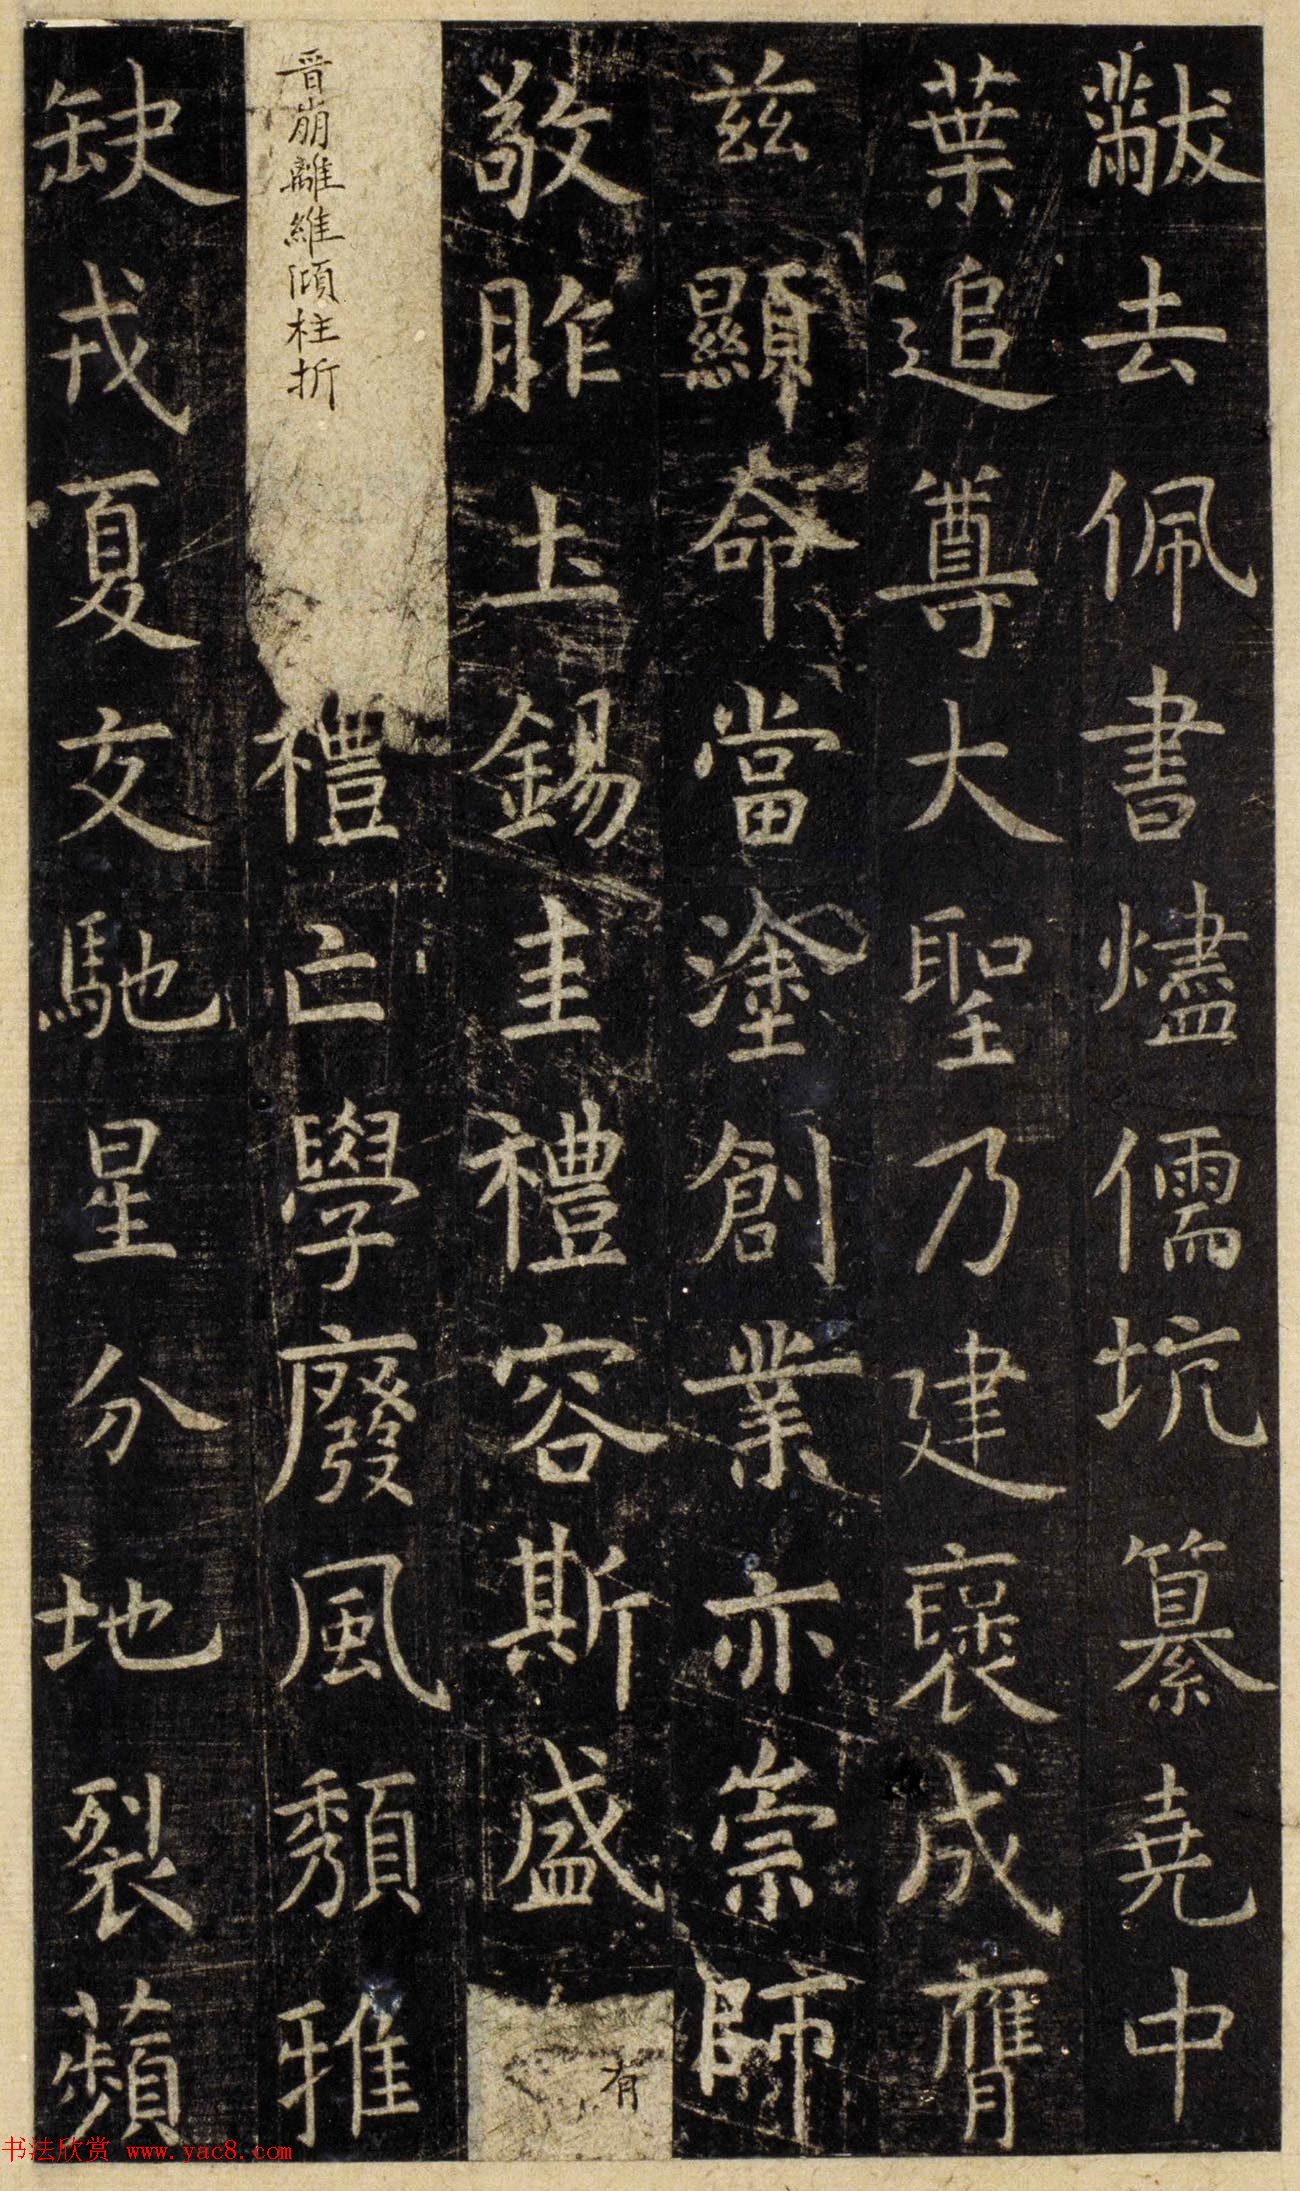 黻去佩書燼儒坑纂堯中
葉追尊大聖乃建襃成膺
兹顯命當塗創業亦崇師
敬胙土錫圭禮容斯盛有
晉崩離維傾柱折禮亡學廢風頹雅
缺戎夏交馳星分地裂蘋
书法欣赏 www.yac8.com